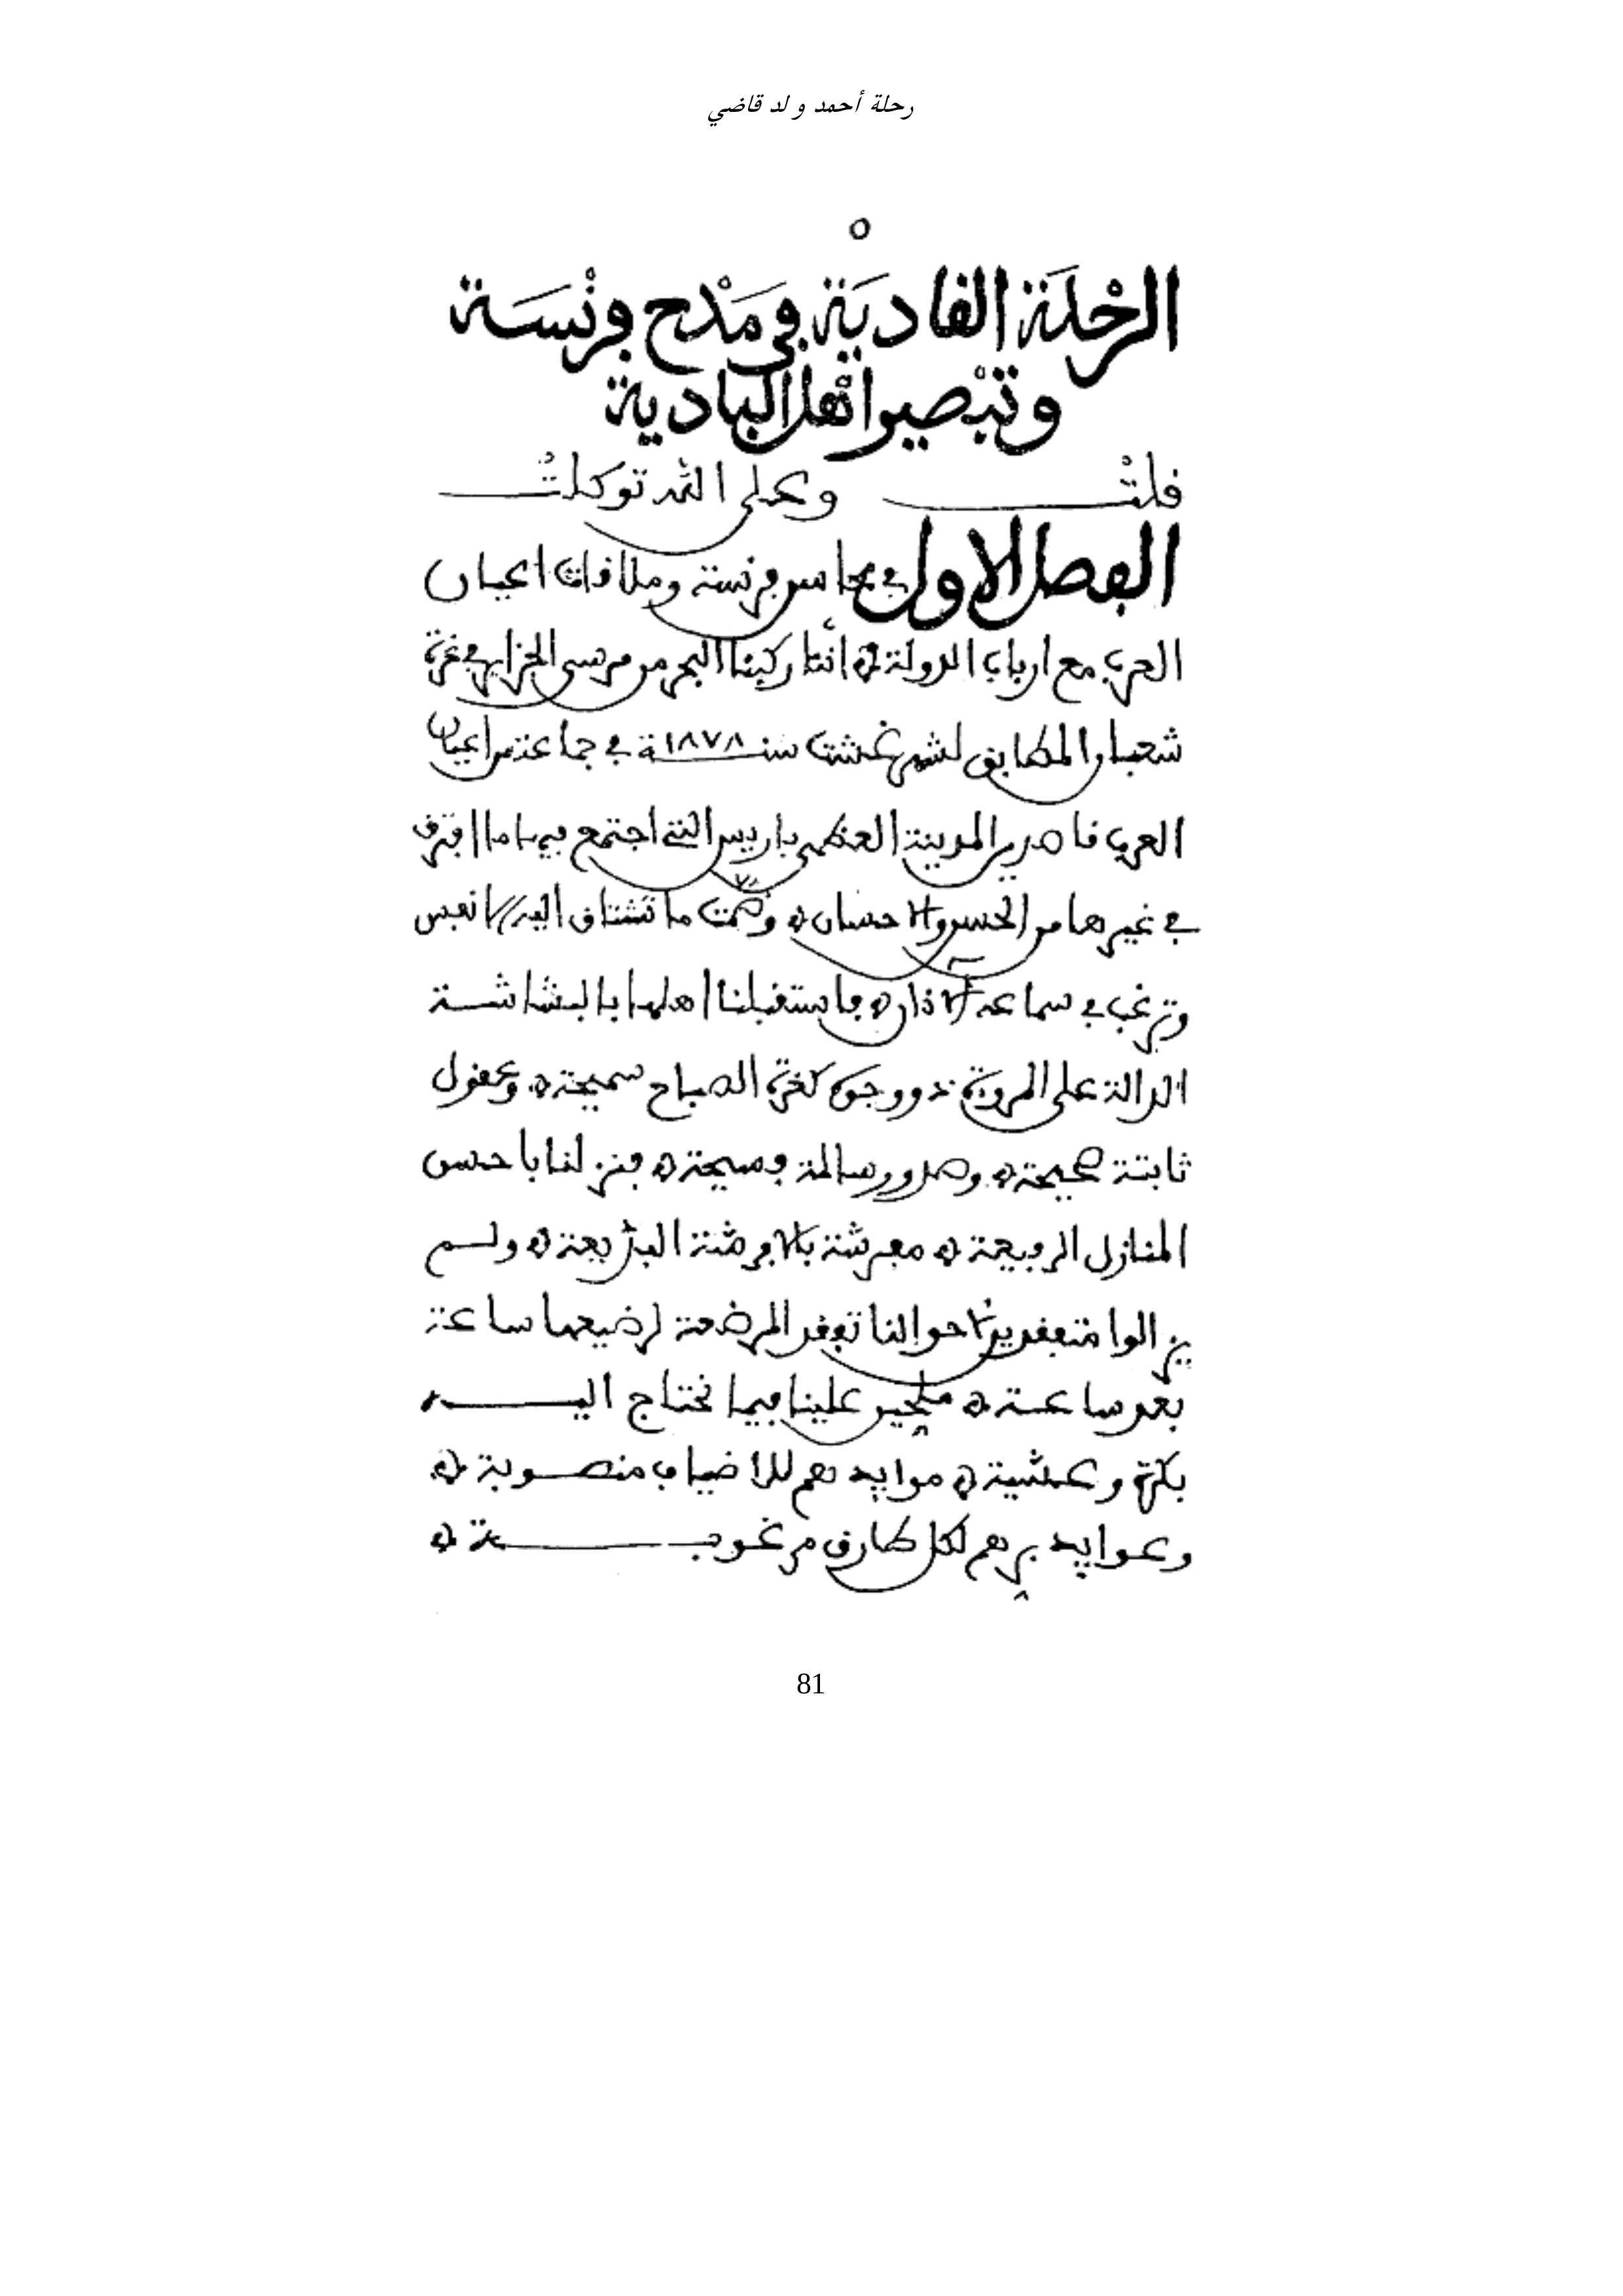 رحلة أحمد ولد قاضي
٥
الرحْلَة القادِيَة في مَدْح فرنْسَة
وتبْصير اهْل البادية
قلتْ وعلى الله توكلتُ
الفصل الاول في محاسن فرنسة وملاقات اعيان
العرب مع ارباب الدولة اننا ركبنا البحر من مرسى الجزاير في غرة
شعبان المطابق لشهر غشت سنة ١٨٧٨ في جماعة من اعيان
العرب قاصدين المدينة العظمى باريس التي اجتمع فيها ما افترق
في غيرها من الحسن والاحسان وضمت ما تشتاق اليه الانفس
وترغب في سماعه الاذان فاستقبلنا اهلها بالبشاشة
الدالة على المروءة ذو وجوه كغرة الصباح سميحة وعقول
ثابتة صحيحة وصدور سالمة فسيحة فنزلنا باحسن
المنازل الرفيعة مفرشة بالافرشة البديعة ولم
يزالوا متفقدين لاحوالنا تفقد المرضعة لرضيعها ساعة
بعد ساعة ملحين علينا فيما نحتاج اليه
بكرة وعشية موايدهم للاضياف منصوبة
وعوايد برهم لكل طارق مرغوبة
81